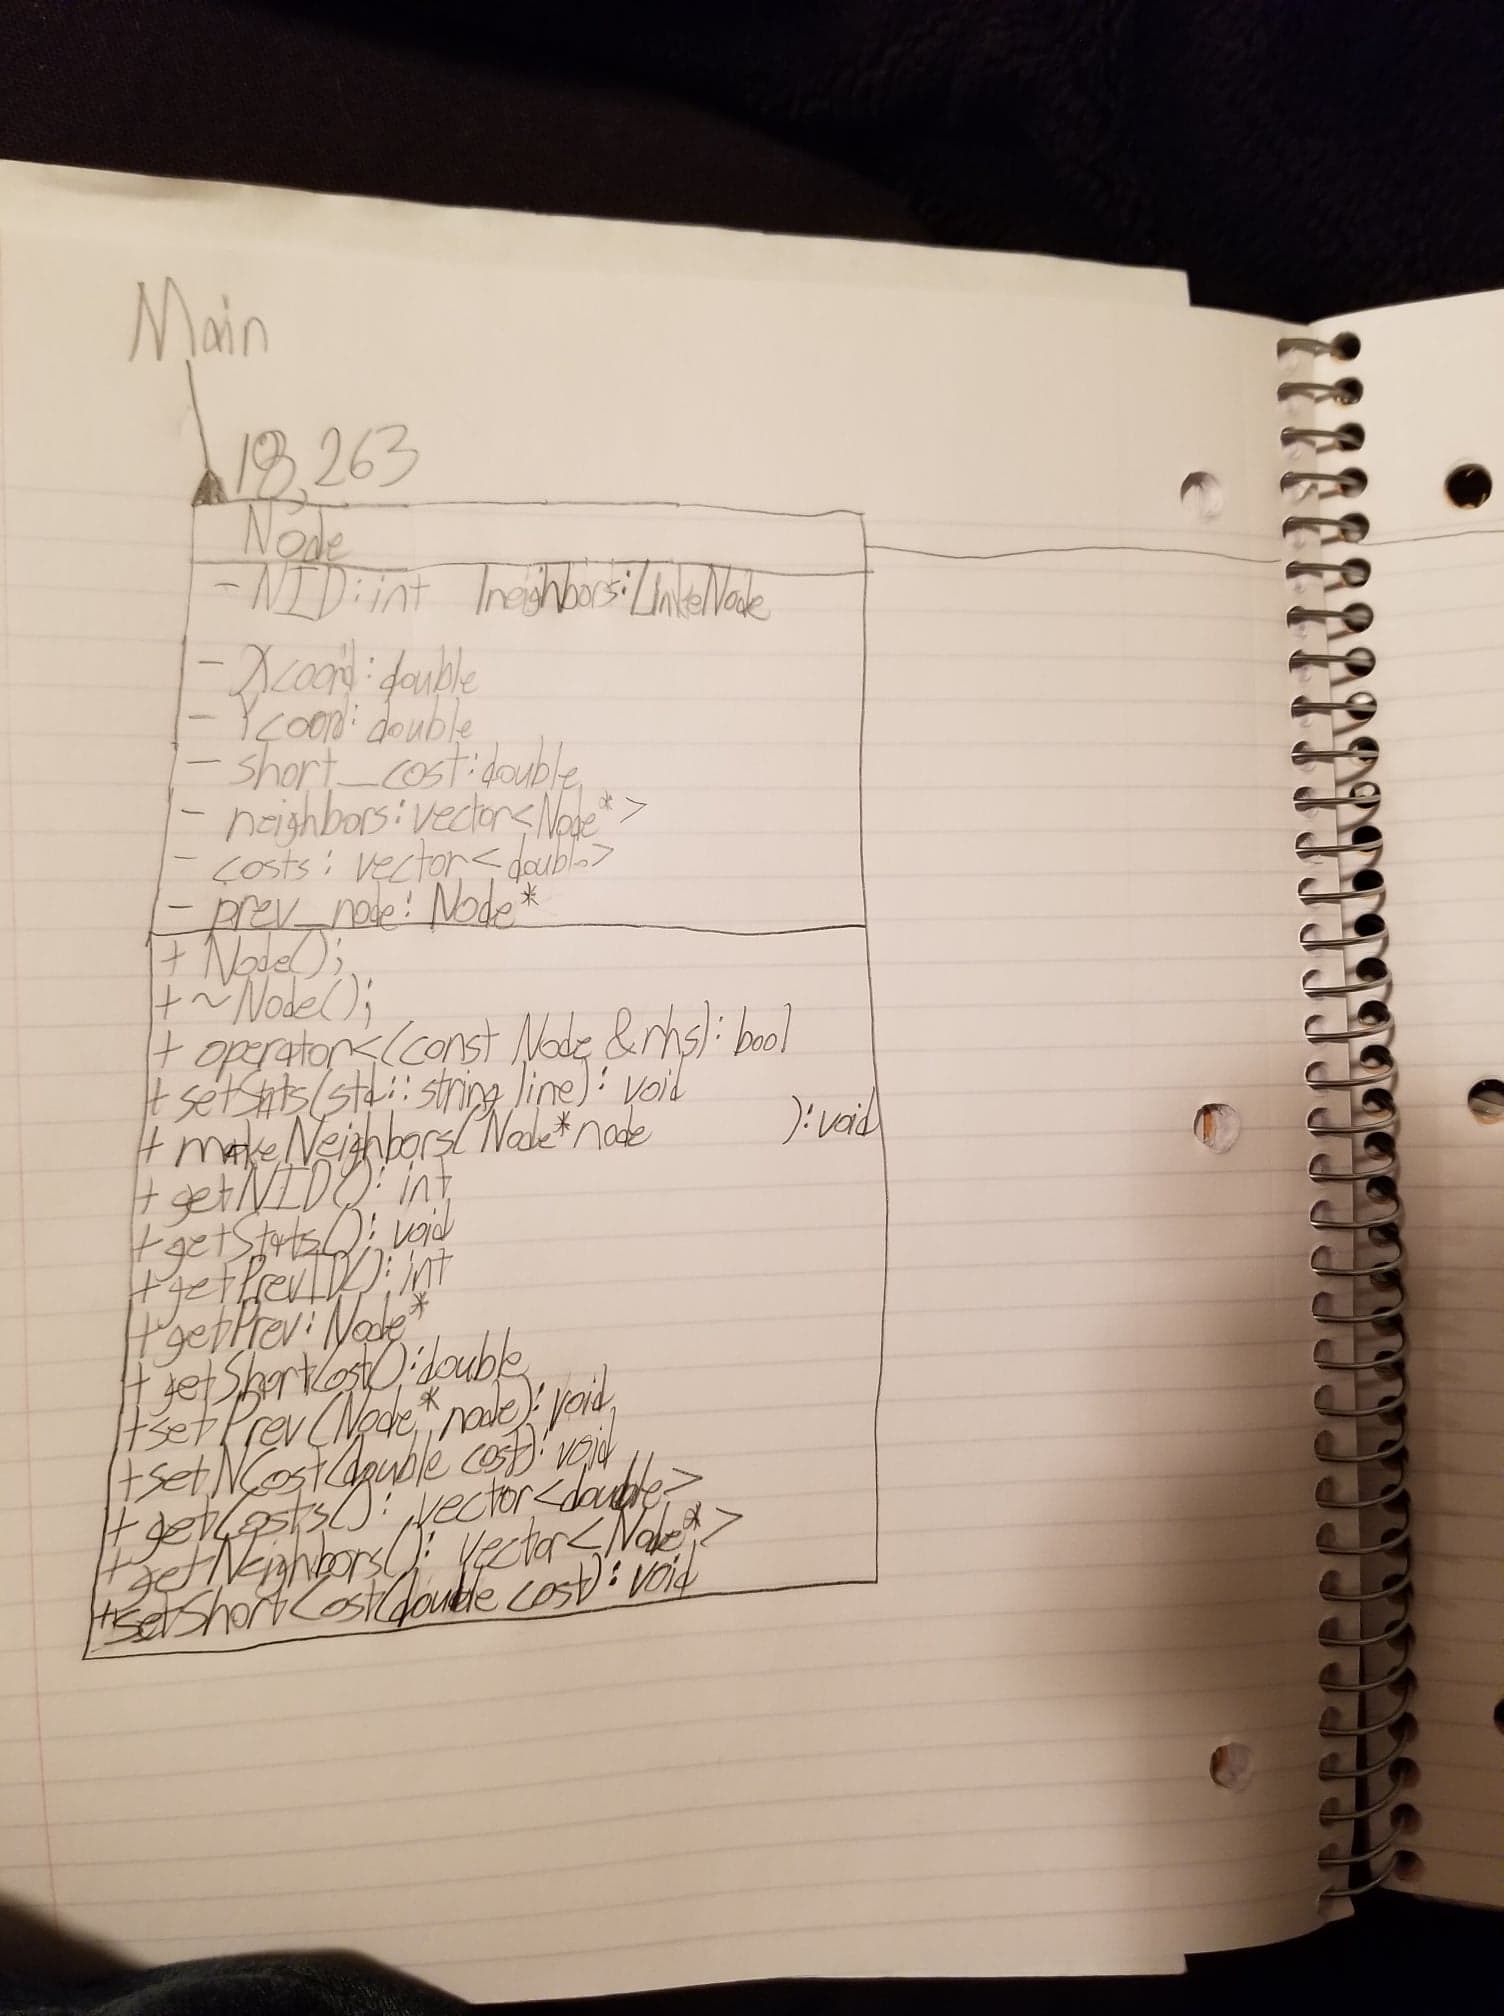 Main
18,263
Node
- NID: int lneighbors: LinkeNode
- Xcoord: double
- Ycoord: double
- short_cost: double
- neighbors: vector<Node*>
- costs: vector<double>
- prev_node: Node*
+ Node();
+ ~Node();
+ operator<(const Node &rhs): bool
+ setStats(std::string line): void
+ makeNeighbors(Node* node ): void
+ getNID(): int
+ getStats(): void
+ getPrevID(): int
+ getPrev: Node*
+ getShortCost(): double
+ setPrev(Node* node): void
+ setNCost(double cost): void
+ getCosts(): vector<double>
+ getNeighbors(): vector<Node*>
+ setShortCost(double cost): void